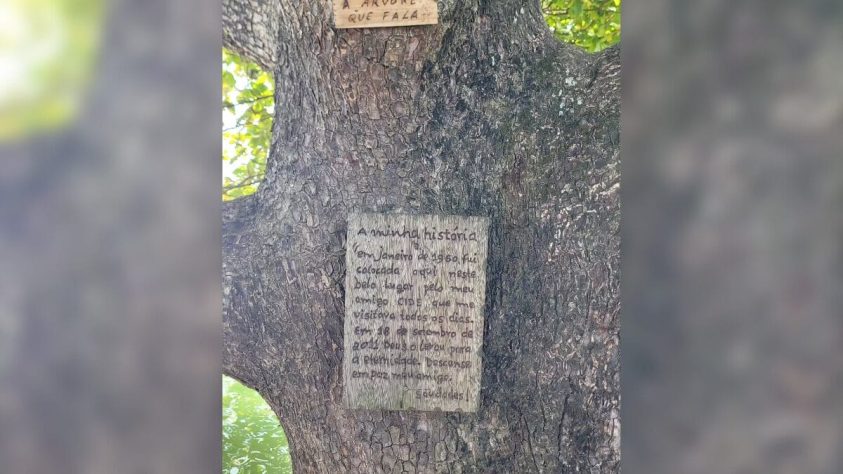 A ÁRVORE
QUE FALA
A minha história
"em janeiro de 1960, fui
colocada aqui neste
belo lugar pelo meu
amigo CIDE que me
visitava todos os dias.
Em 18 de setembro de
2021 Deus o levou para
a eternidade. Descanse
em paz meu amigo.
Saudades!